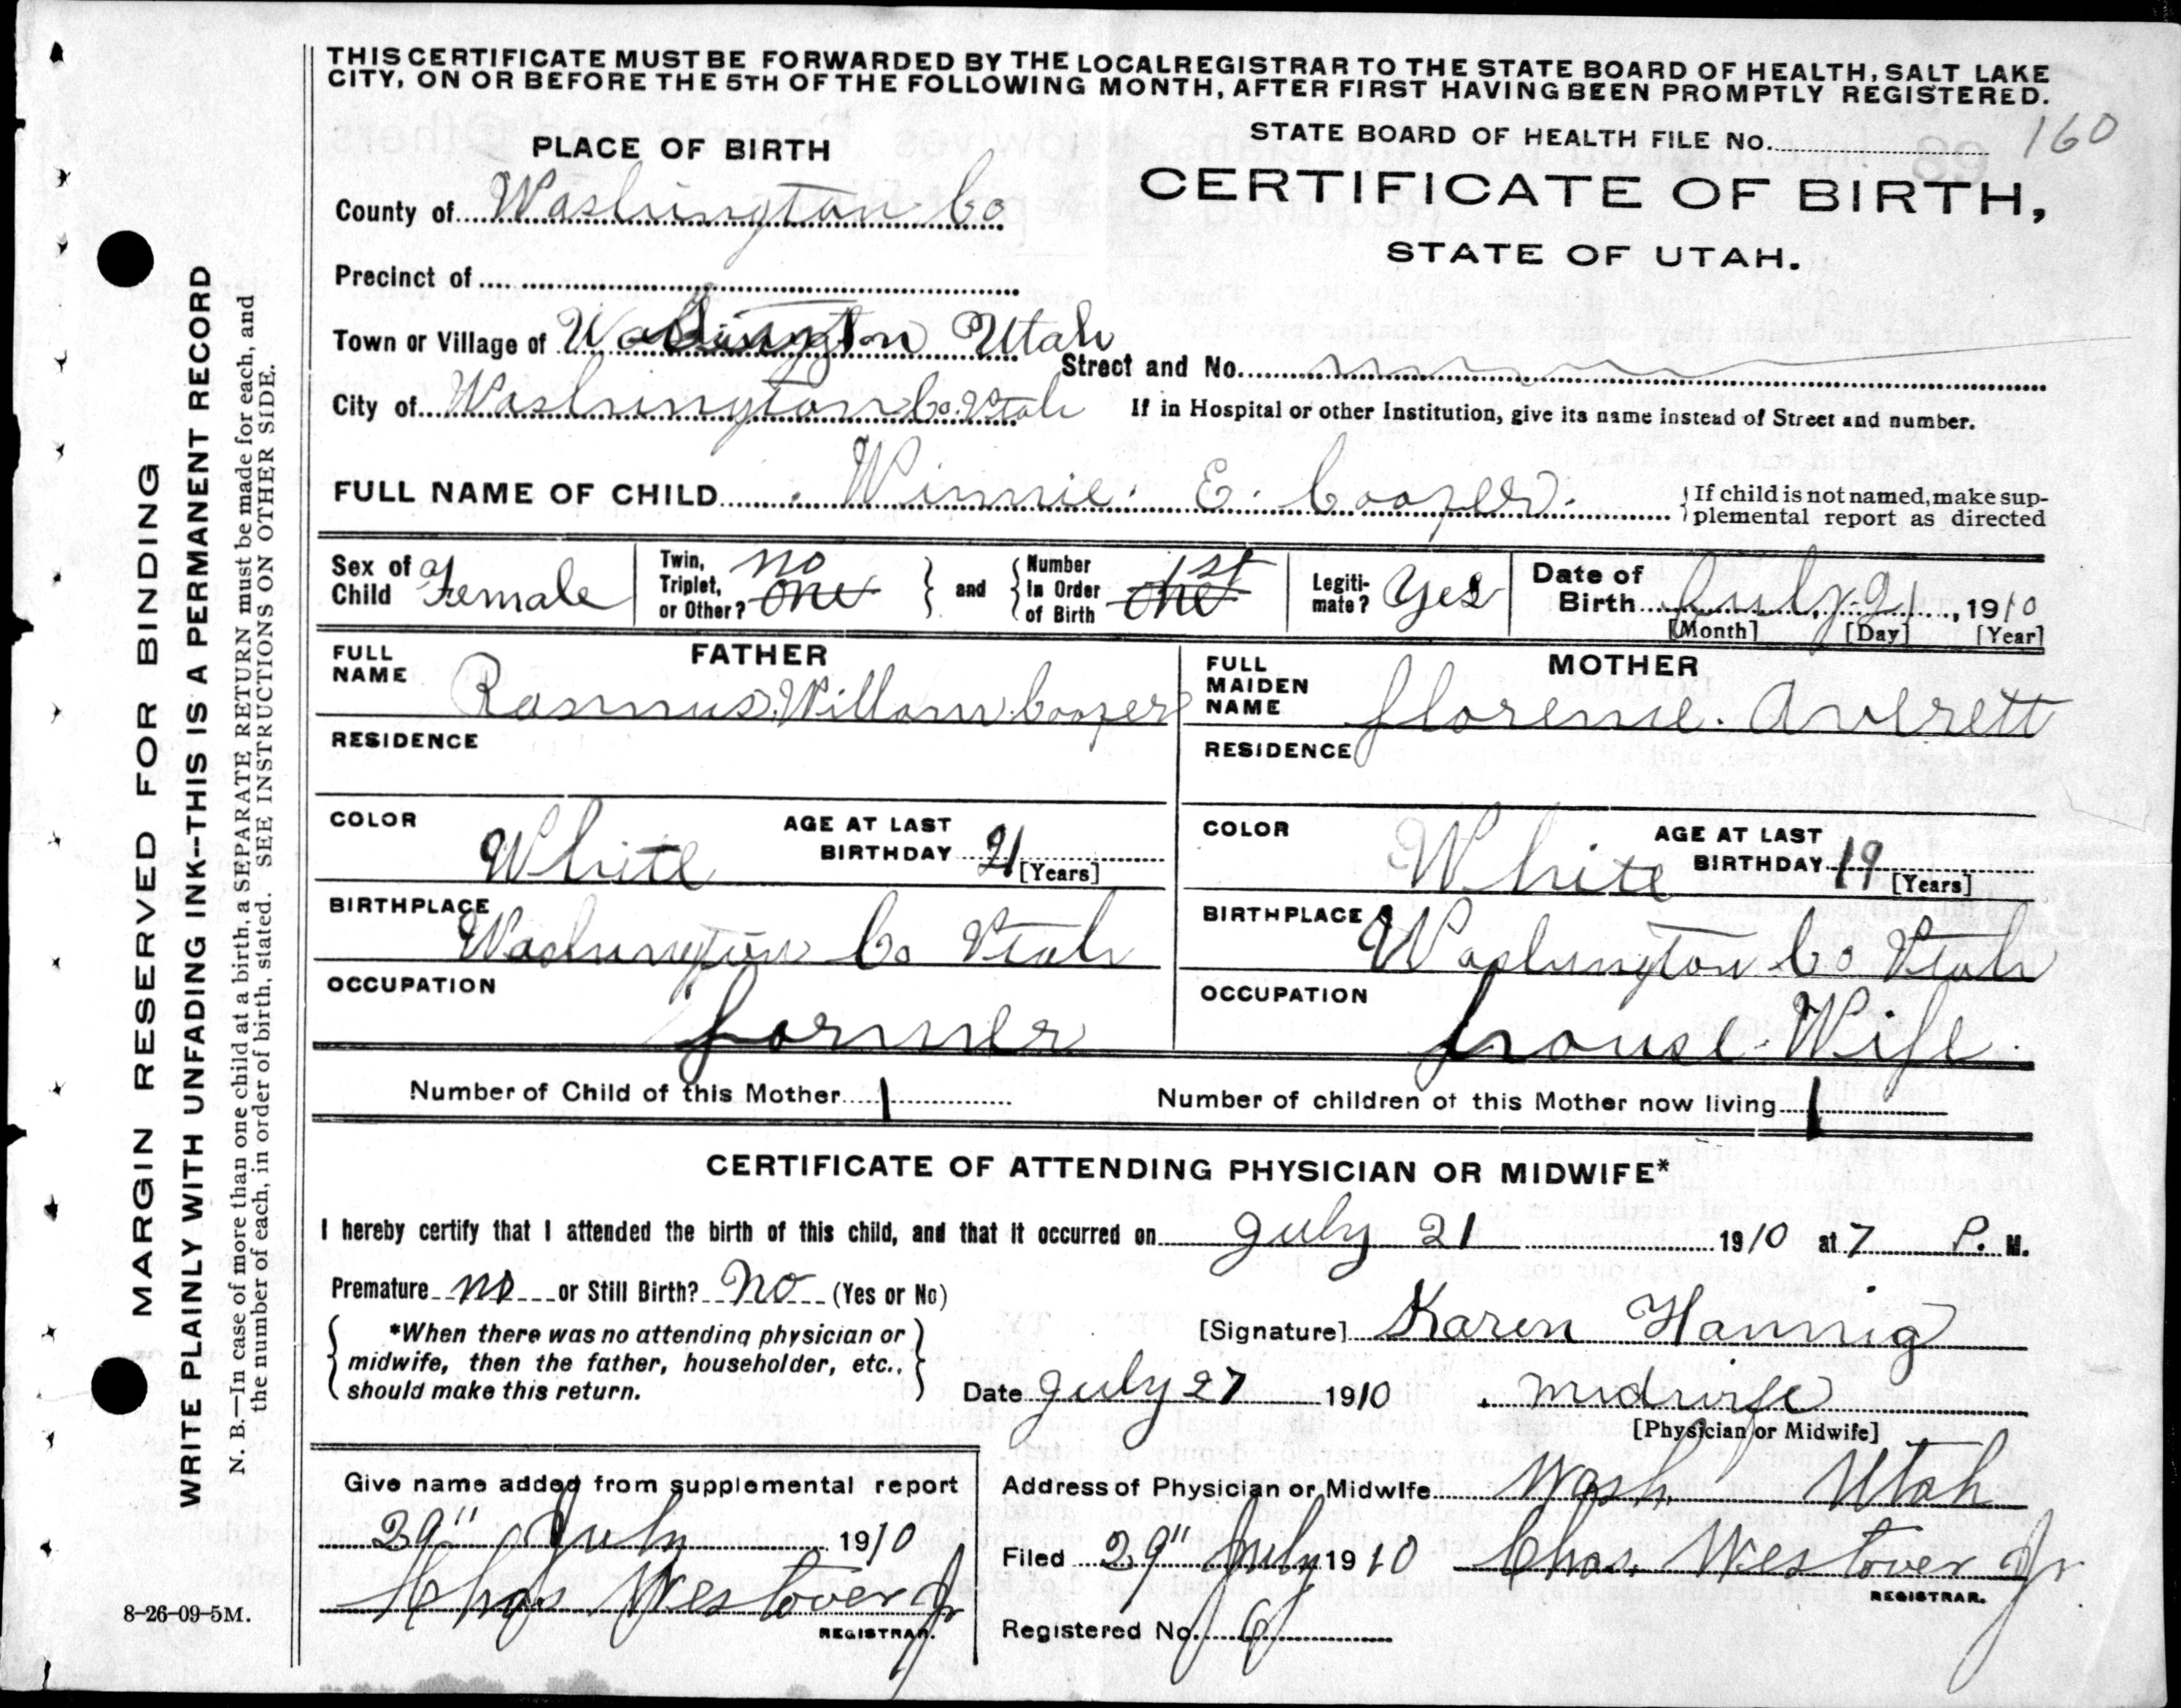 THIS CERTIFICATE MUST BE FORWARDED BY THE LOCAL REGISTRAR TO THE STATE BOARD OF HEALTH, SALT LAKE
CITY, ON OR BEFORE THE 5TH OF THE FOLLOWING MONTH, AFTER FIRST HAVING BEEN PROMPTLY REGISTERED.
STATE BOARD OF HEALTH FILE No. 160
PLACE OF BIRTH
CERTIFICATE OF BIRTH,
STATE OF UTAH.
County of Washington Co
Precinct of
Town or Village of Washington Utah
Street and No.
City of Washington Co. Utah
If in Hospital or other Institution, give its name instead of Street and number.
FULL NAME OF CHILD Winnie. E. Cooper.
If child is not named, make sup-
plemental report as directed
Sex of Child Female
Twin, Triplet, or Other? no one
and
Number In Order of Birth 1st one
Legiti-mate? Yes
Date of Birth July 21, 1910
[Month] [Day] [Year]
FATHER
FULL NAME Rasmus. Willam. Cooper
RESIDENCE
COLOR White
AGE AT LAST BIRTHDAY 21 [Years]
BIRTHPLACE Washington Co Utah
OCCUPATION farmer
MOTHER
FULL MAIDEN NAME florence. Averett
RESIDENCE
COLOR White
AGE AT LAST BIRTHDAY 19 [Years]
BIRTHPLACE Washington Co Utah
OCCUPATION house. Wife.
Number of Child of this Mother 1
Number of children of this Mother now living 1
CERTIFICATE OF ATTENDING PHYSICIAN OR MIDWIFE*
I hereby certify that I attended the birth of this child, and that it occurred on July 21 1910 at 7 P. M.
Premature no or Still Birth? no (Yes or No)
*When there was no attending physician or
midwife, then the father, householder, etc.,
should make this return.
[Signature] Karen Hannig
Date July 27 1910 midwife
[Physician or Midwife]
Give name added from supplemental report
29" July 1910
Chas Westover Jr
REGISTRAR.
Address of Physician or Midwife Wash. Utah
Filed 29" July 1910 Chas. Westover Jr.
REGISTRAR.
Registered No. 6
8-26-09-5M.
MARGIN RESERVED FOR BINDING
WRITE PLAINLY WITH UNFADING INK--THIS IS A PERMANENT RECORD
N. B.—In case of more than one child at a birth, a SEPARATE RETURN must be made for each, and
the number of each, in order of birth, stated. SEE INSTRUCTIONS ON OTHER SIDE.